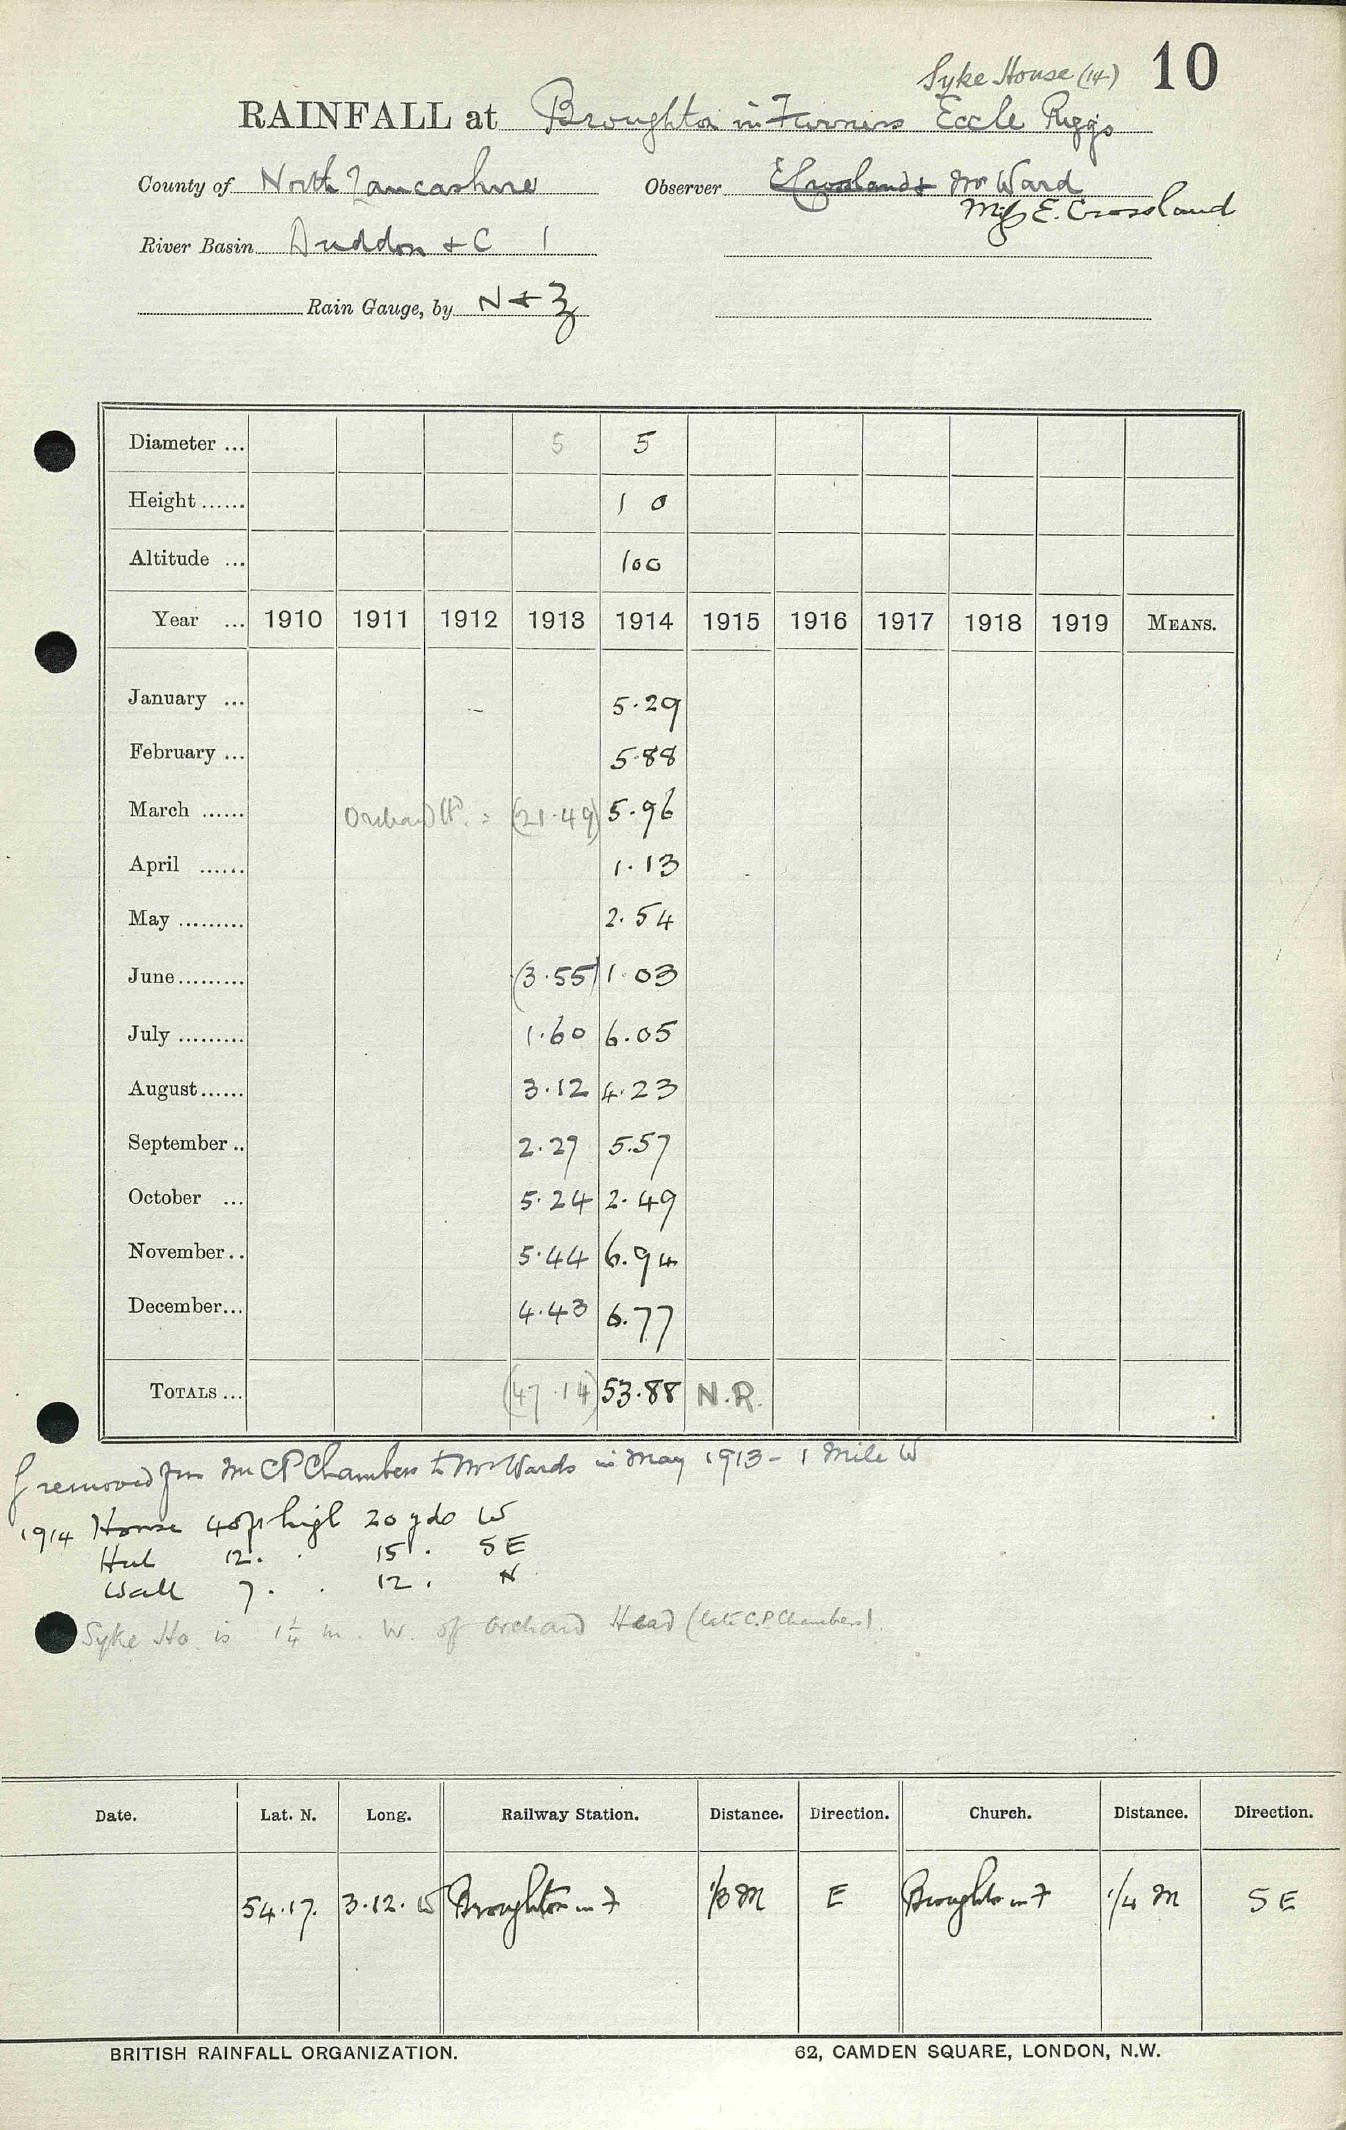 Syke House (14) 10
RAINFALL at Broughton in Furness Eccle Riggs
County of North Lancashire Observer E Crossland & Mr Ward
Miss E. Crossland
River Basin Duddon & C 1
Rain Gauge, by N & Z
Diameter ... 5 5
Height ...... 1 0
Altitude ... 100
Year ... 1910 1911 1912 1913 1914 1915 1916 1917 1918 1919 MEANS.
January ... 5.29
February ... 5.88
March ...... Orchard H. = (21.49) 5.96
April ...... 1.13
May ......... 2.54
June......... (3.55) 1.03
July ......... 1.60 6.05
August...... 3.12 4.23
September .. 2.27 5.57
October ... 5.24 2.49
November.. 5.44 6.94
December... 4.43 6.77
TOTALS ... (47.14) 53.88 N.R.
G removed from Mr CP Chambers to Mr Wards in May 1913 - 1 Mile W
1914 House 40ft high 20 yds W
Hut 12. . 15 . SE
Wall 7. . 12 . N
Syke Ho. is 1¼ m. W. of Orchard Head (late C.P. Chambers).
Date. Lat. N. Long. Railway Station. Distance. Direction. Church. Distance. Direction.
54.17. 3.12. W Broughton in F 1/3 M E Broughton in F 1/4 M SE
BRITISH RAINFALL ORGANIZATION. 62, CAMDEN SQUARE, LONDON, N.W.